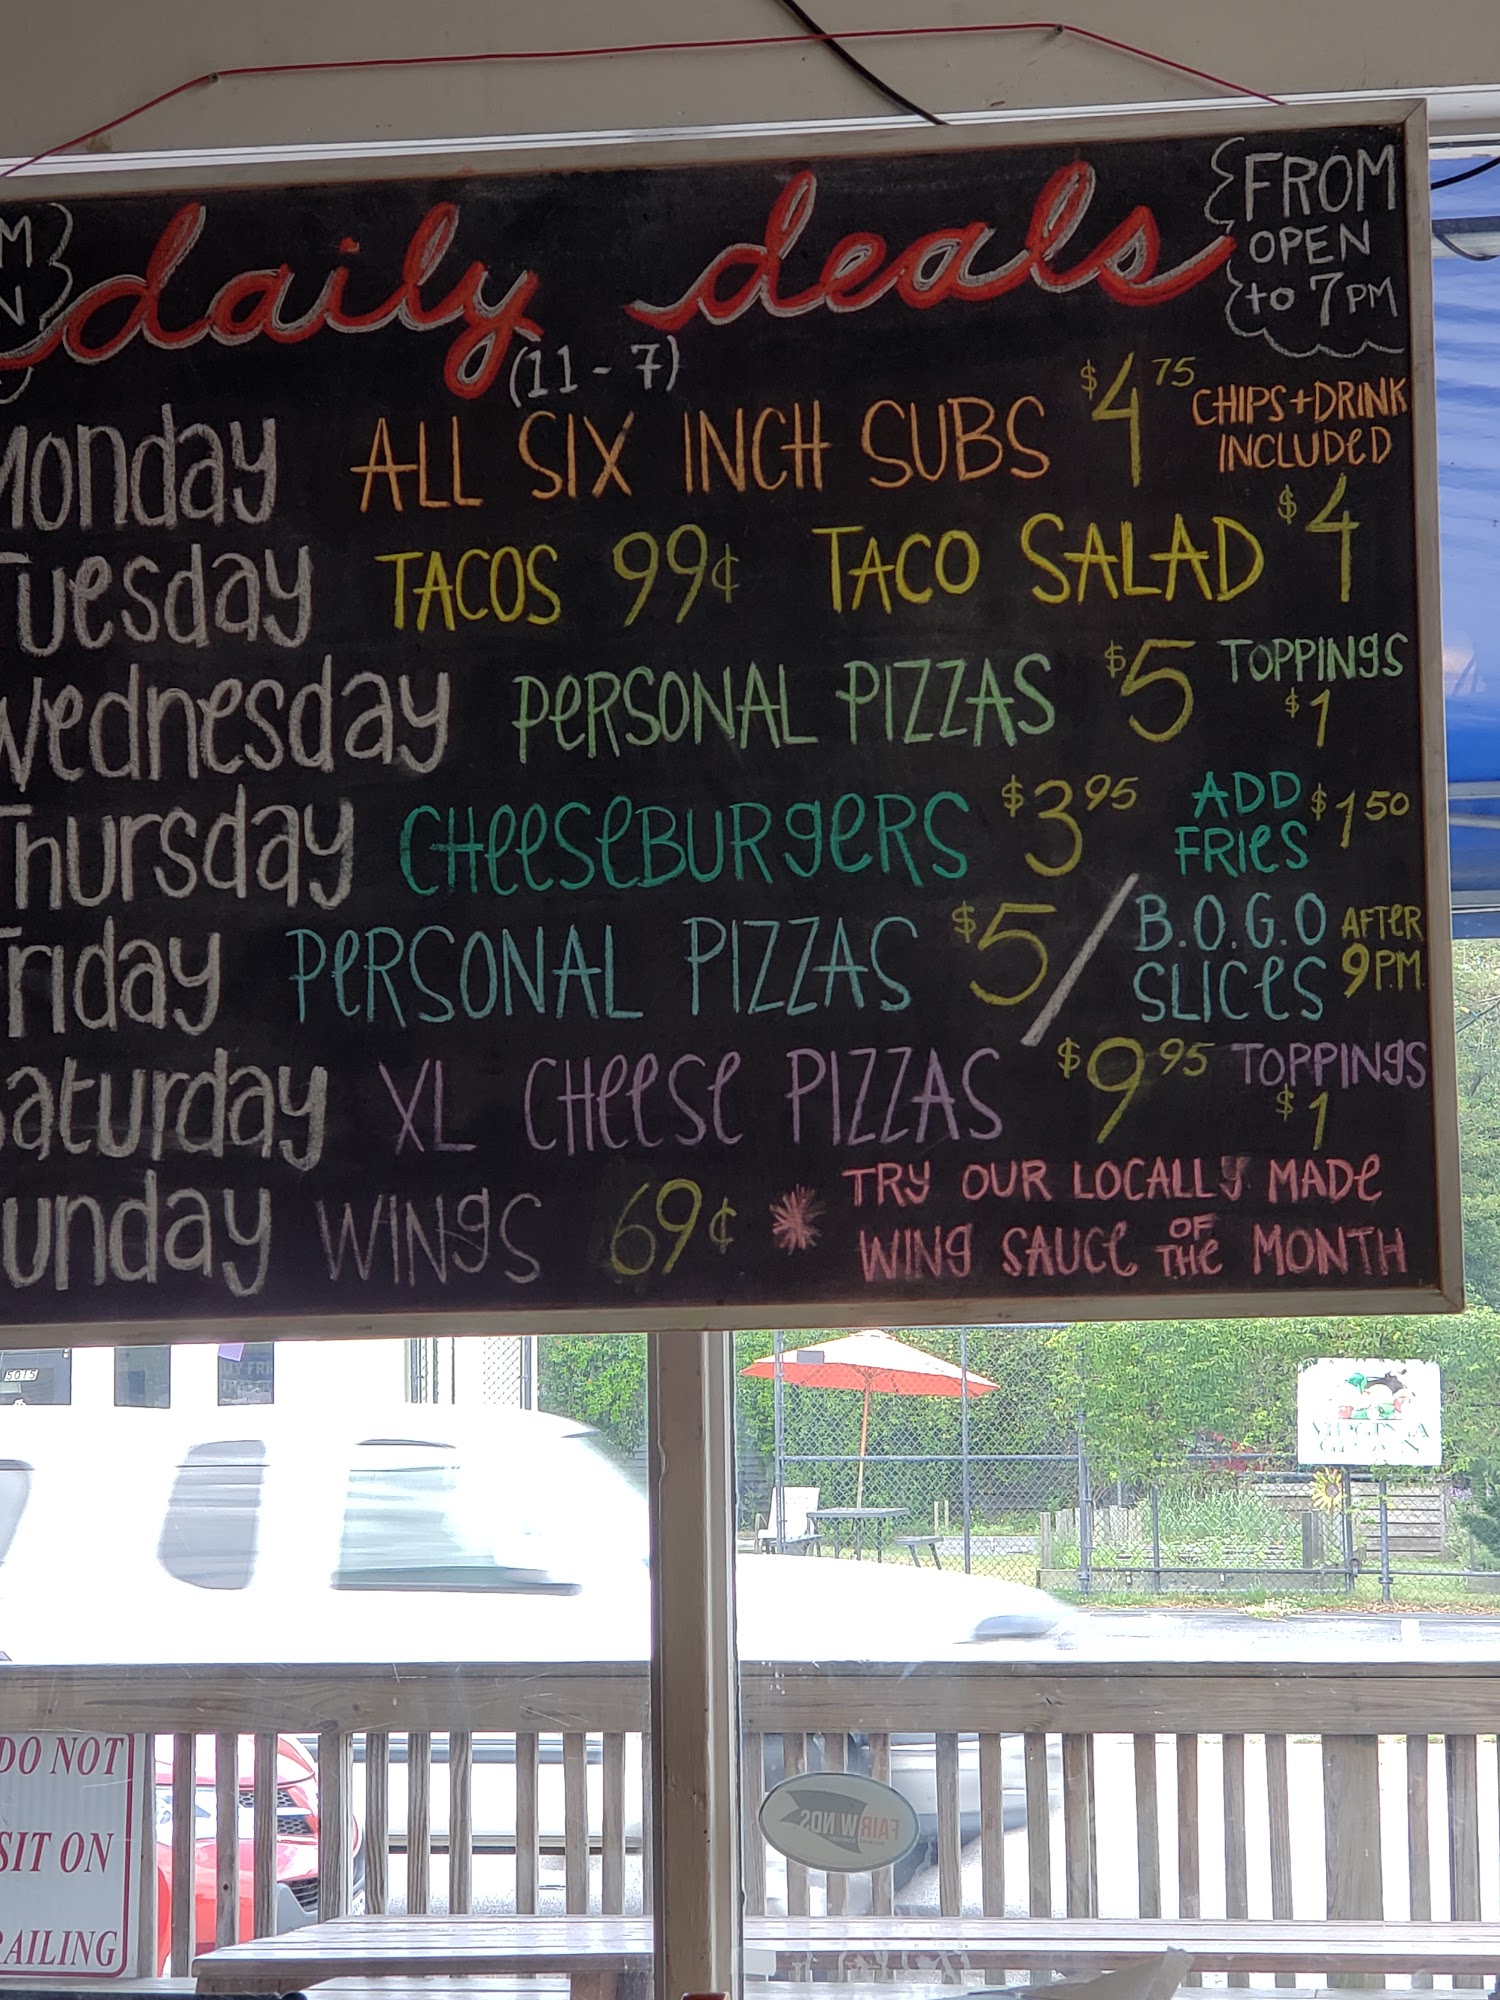 daily deals
FROM
OPEN
to 7PM
(11-7)
Monday ALL SIX INCH SUBS $4.75 CHIPS+DRINK
INCLUDED
Tuesday TACOS 99¢ TACO SALAD $4
Wednesday PERSONAL PIZZAS $5 TOPPINGS
$1
Thursday CHEESEBURGERS $3.95 ADD
FRIES $1.50
Friday PERSONAL PIZZAS $5 / B.O.G.O
SLICES AFTER
9P.M.
Saturday XL CHEESE PIZZAS $9.95 TOPPINGS
$1
Sunday WINGS 69¢ * TRY OUR LOCALLY MADE
WING SAUCE OF THE MONTH
5015
VIRGINIA
GROWN
DO NOT
SIT ON
RAILING
FAIR WINDS